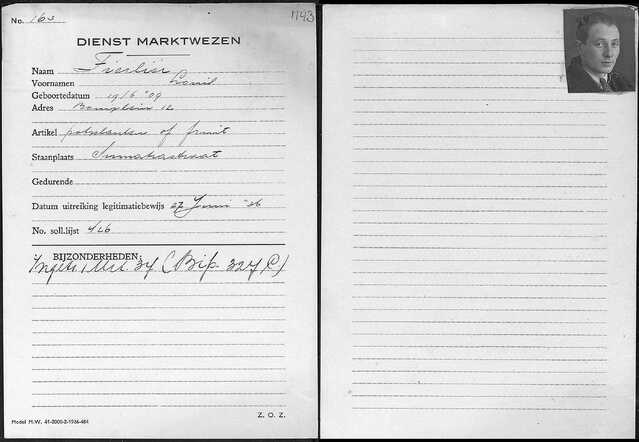 No. 160
1143
DIENST MARKTWEZEN
Naam Fierlier
Voornamen Louis
Geboortedatum 19/6 '09
Adres 12
Artikel potplanten of fruit
Staanplaats Sumatrastraat
Gedurende
Datum uitreiking legitimatiebewijs 27 Juni '36
No. soll.lijst 426
BIJZONDERHEDEN:
Ingetr. 1 Mrt. 37 (Bip. 327 C)
Model M.W. 41-2000-2-1936-461
Z. O. Z.